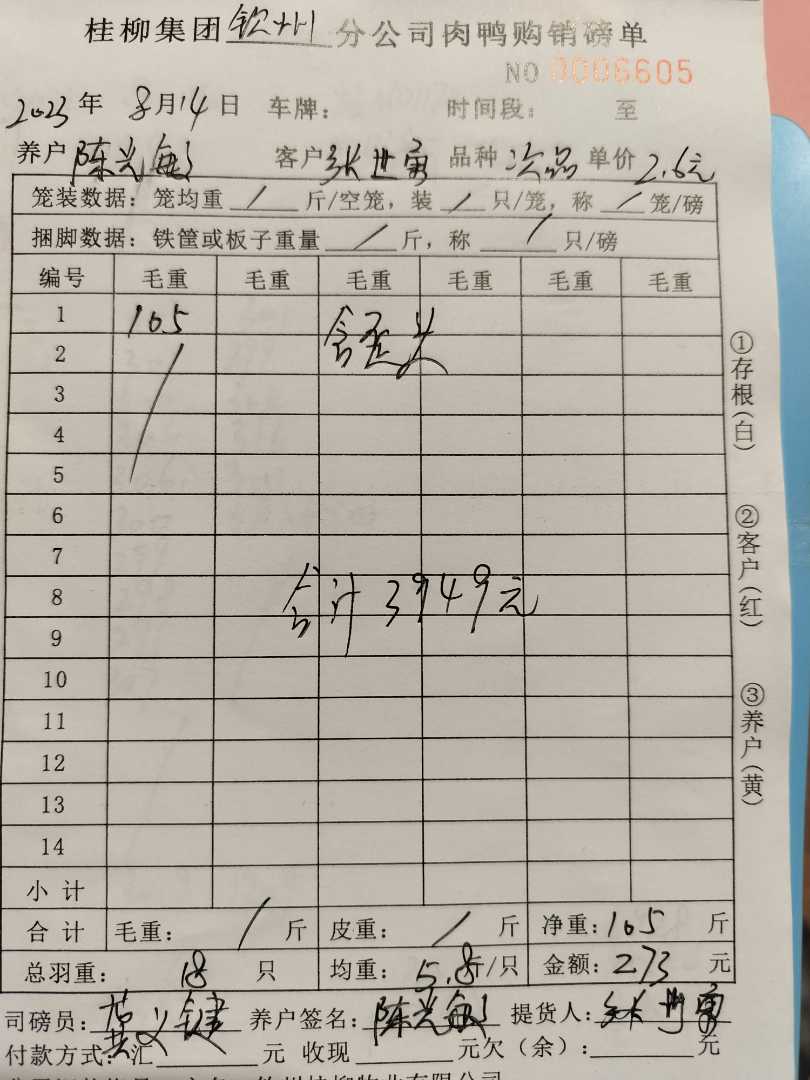 桂柳集团钦州分公司肉鸭购销磅单
NO 0006605
2023年 8月14日 车牌： 时间段： 至
养户陈光敏 客户张世勇 品种 次品 单价 2.6元
笼装数据：笼均重 / 斤/空笼，装 / 只/笼，称 / 笼/磅
捆脚数据：铁筐或板子重量 / 斤，称 / 只/磅
编号 毛重 毛重 毛重 毛重 毛重 毛重
1 105 含歪头
2 /
3
4
5
6
7
8 合计3949元
9
10
11
12
13
14
小计
合计 毛重： / 斤 皮重： / 斤 净重：105 斤
总羽重： 18 只 均重： 5.8斤/只 金额：273 元
司磅员： 养户签名：陈光敏 提货人：张世勇
付款方式：汇 元 收现 元欠（余）： 元
①存根（白）
②客户（红）
③养户（黄）